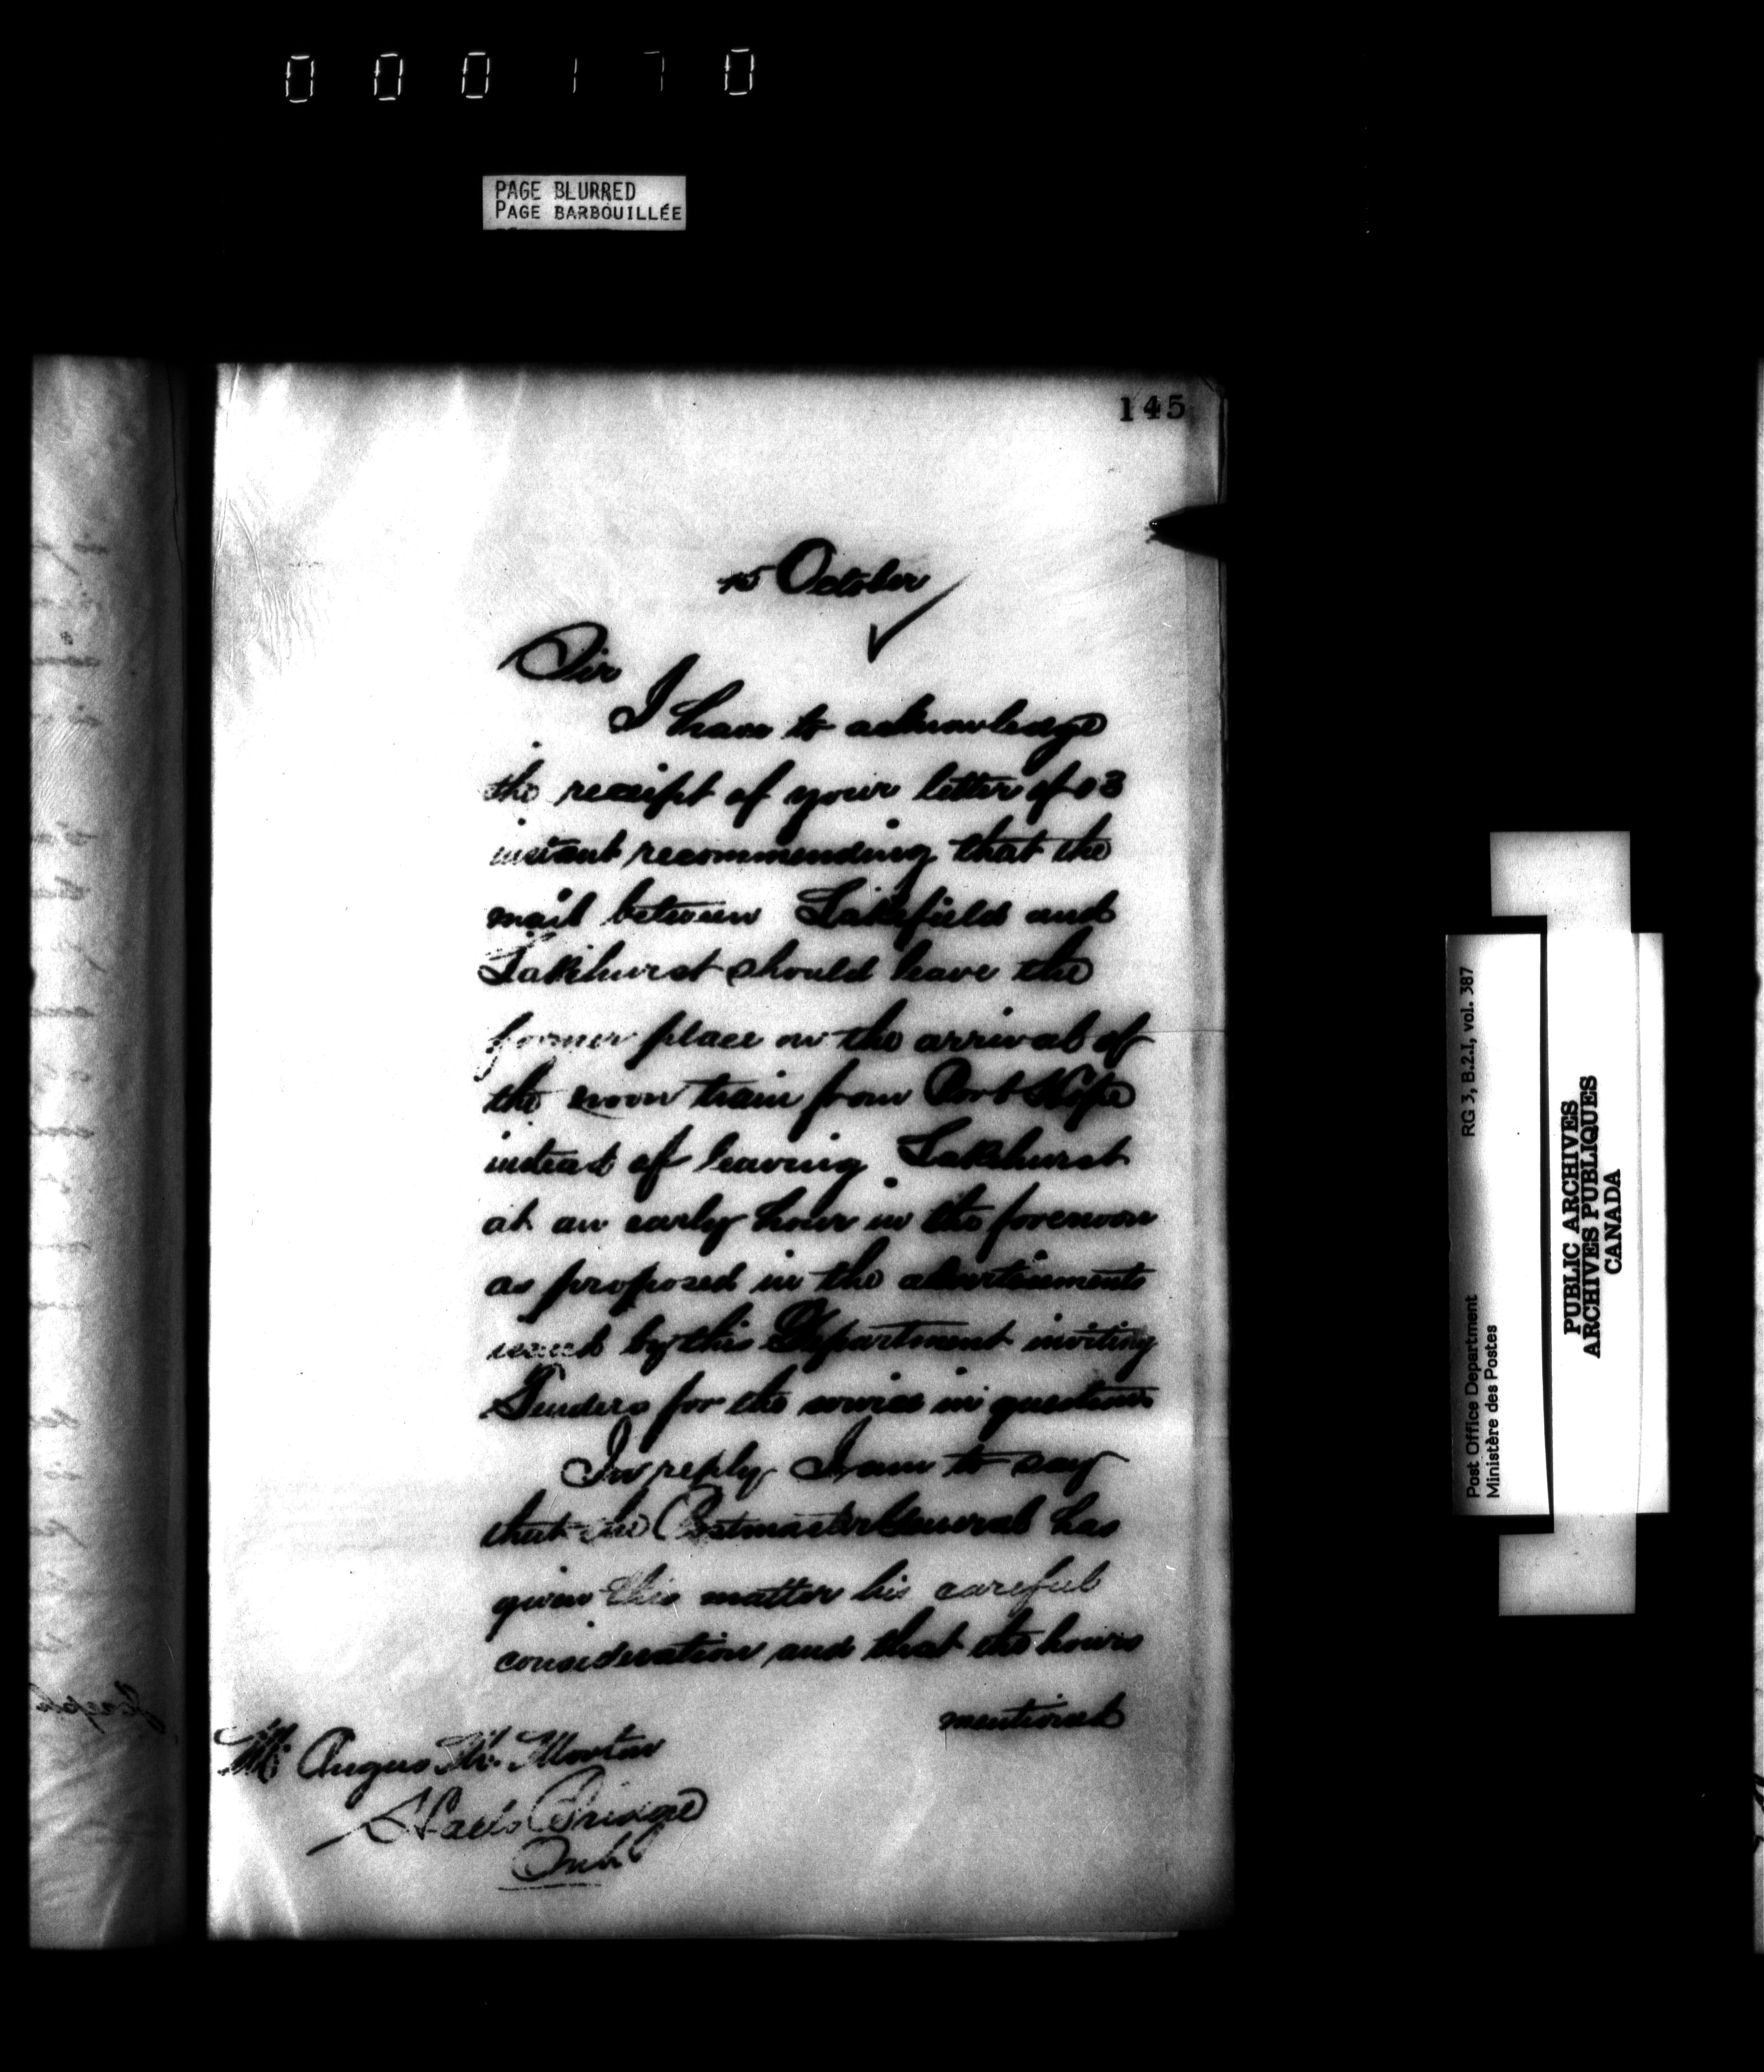 000170
PAGE BLURRED
PAGE BARBOUILLÉE
145
15 October
Sir
I have to acknowledge
the receipt of your letter of 03
instant recommending that the
mail between Lakefield and
Lakehurst should leave the
former place on the arrival of
the noon train from Port Hope
instead of leaving Lakehurst
at an early hour in the forenoon
as proposed in the advertisements
issued by this Department inviting
Tenders for the service in question
In reply I am to say
that the Postmaster General has
given this matter his careful
consideration and that the hours
mentioned
Mr Angus Morton
Bridge
Ont
RG 3, B.2.I, vol. 387
Post Office Department
Ministère des Postes
PUBLIC ARCHIVES
ARCHIVES PUBLIQUES
CANADA